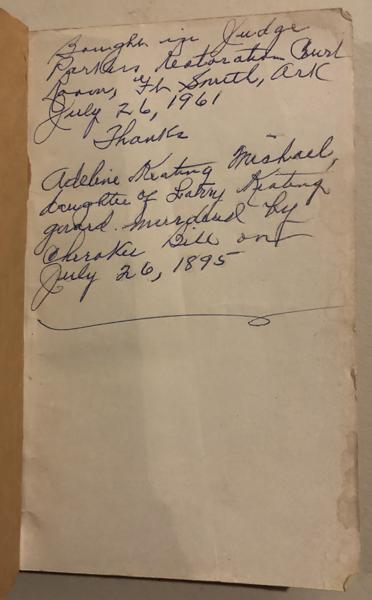 Bought in Judge
Parkers Restoration Court
Room, Ft Smith, Ark
July 26, 1961
Thanks
Adeline Keating Mishael,
daughter of Larry Keating
guard. murdered by
Cherokee Bill on
July 26, 1895